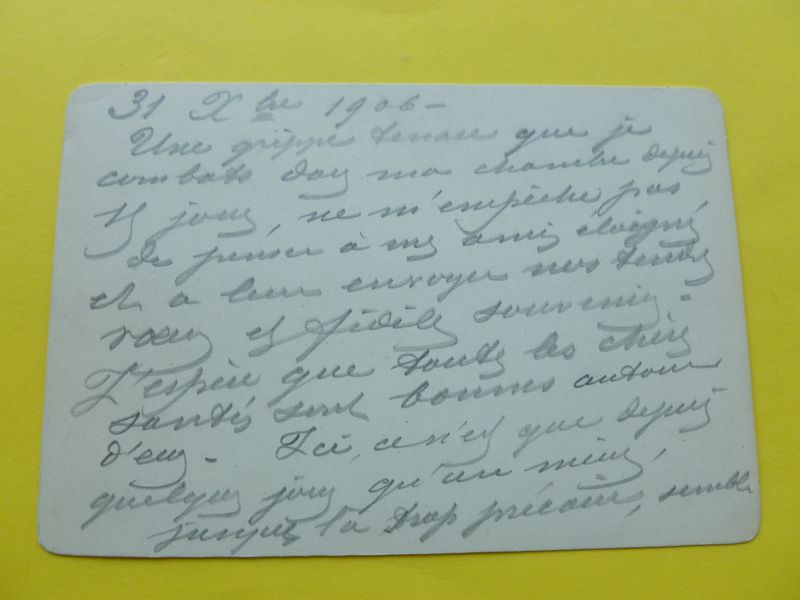 31 Xbre 1906 -
Une grippe tenace que je
combats dans ma chambre depuis
jours, ne m'empêche pas,
de penser à mes amis éloignés
et à leur envoyer nos tendres
vœux et fidèles souvenirs. -
J'espère que toutes les chères
santés sont bonnes autour
d'eux - Ici, ce n'est que depuis
quelques jours qu'un mieux,
jusques là trop précaire, semble